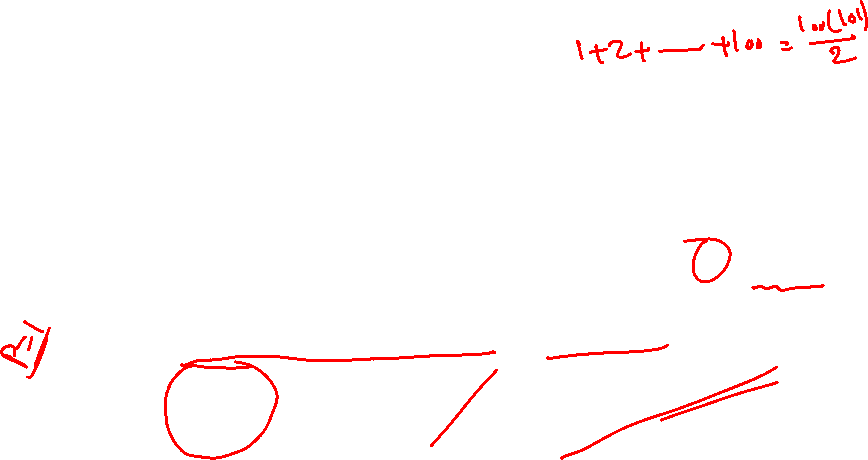 1+2+ — +100 = 100(101)/2